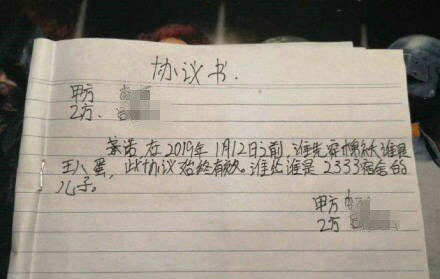 协议书.
甲方
乙方.
承诺在2019年1月12日之前,谁先穿棉袄谁是
王八蛋,此协议始终有效.谁怂谁是2333宿舍的
儿子.
甲方
乙方